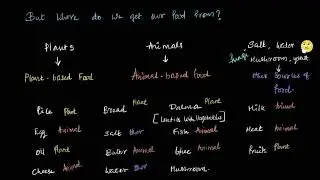 But where do we get our food from?
Plants Animals Salt, water
Fungi Mushroom, yeast
Plant-based Food Animal-based food Other sources of
Food
Rice Plant Bread Plant Dalma Plant Milk Animal
[Lentils with Vegetables]
Egg Animal Salt Other Fish Animal Meat Animal
Oil Plant Butter Animal Ghee Animal Fruits Plant
Cheese Animal Water Other Mushroom